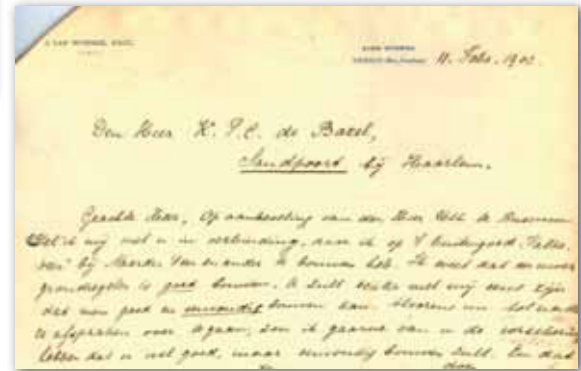 J. VAN WOENSEL KOOY,
11. Febr. 1902.
Den Heer K. P. C. de Bazel,
Sandpoort bij Haarlem.
Geachte Heer, Op aanbeveling van den Heer
stel ik mij met u in verbinding, daar ik op 't buitengoed
bij Naarden een en ander te bouwen heb. Ik weet dat
grondregelen is goed bouwen. U zult echter met mij eens zijn
dat men goed en eenvoudig bouwen kan. Alvorens nu tot nadere
afspraken over te gaan, zou ik gaarne van u de verzekering
hebben dat u wel goed, maar eenvoudig bouwen zult. En dat